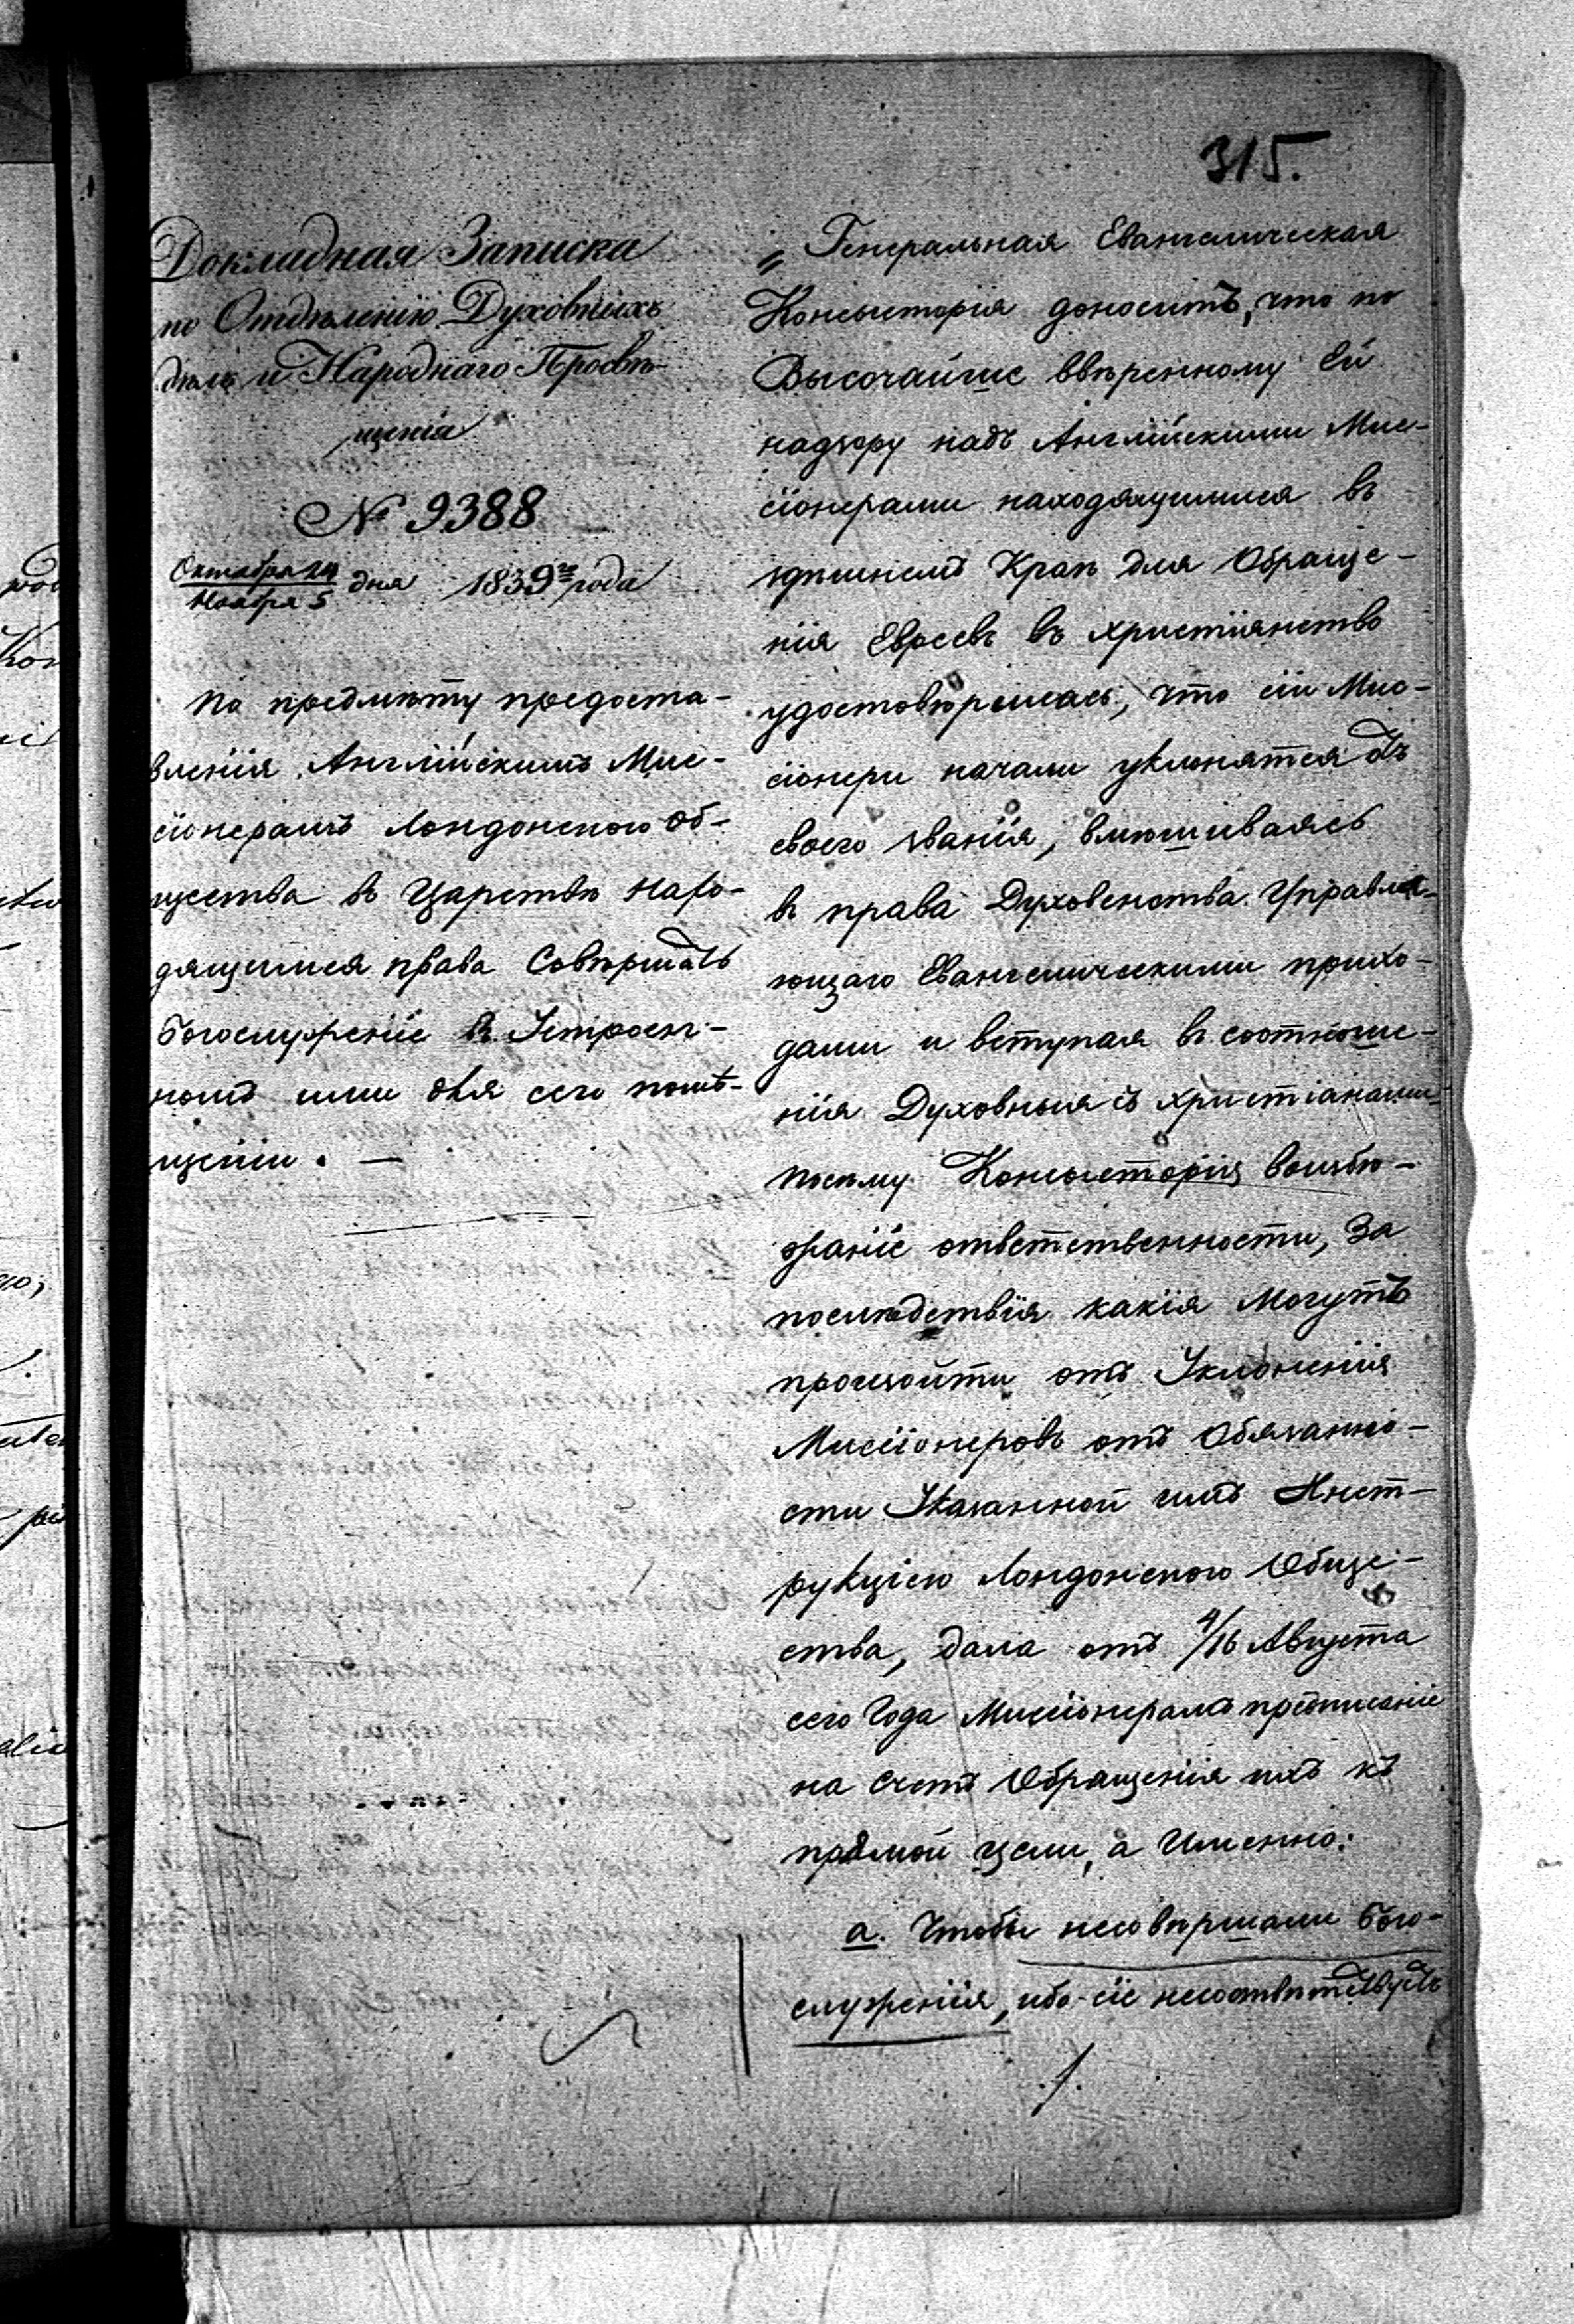 315.
Докладная Записка
по Отдѣленію Духовныхъ
дѣлъ и Народнаго Просвѣ-
щенія
№ 9388
Октября 24
Ноября 5 дня 1839го года
По предмѣту предоста-
вленія Англійскимъ Мис-
сіонерамъ Лондонского Об-
щества въ Царствѣ Нахо-
дящимся права Совѣршать
Богослуженіе въ Устроен-
номъ ими для сего помѣ-
щеніи. —
„Генеральная Евангелическая
Консысторія доноситъ, что по
Высочайше ввѣренному Ей
надзору надъ Англійскими Мис-
сіонерами находящимися въ
здѣшнемъ Краѣ для Обраще-
нія Евреевъ въ христіянство
удостовѣрилась, что сіи Мис-
сіонери начали уклонятся отъ
своего званія, вмѣшиваясь
въ права Духовенства Управля-
ющаго Евангелическими прихо-
дами и вступая въ соотноше-
нія Духовныя съ христіанами
посему Консысторія воизбѣ-
жаніе ответственности, За
послѣдствія какія Могутъ
произойти отъ Уклоненія
Миссіонеровъ отъ Обязанно-
сти Указанной имъ Инст-
рукціею Лондонского Обще-
ства, дала отъ 4/16 Августа
сего Года Миссіонерамъ предписаніе
на счетъ Обращенія ихъ къ
прямой цели, а Именно:
а. Чтобы несовѣршали Бого-
служенія, ибо сіе несоответствуетъ
./.